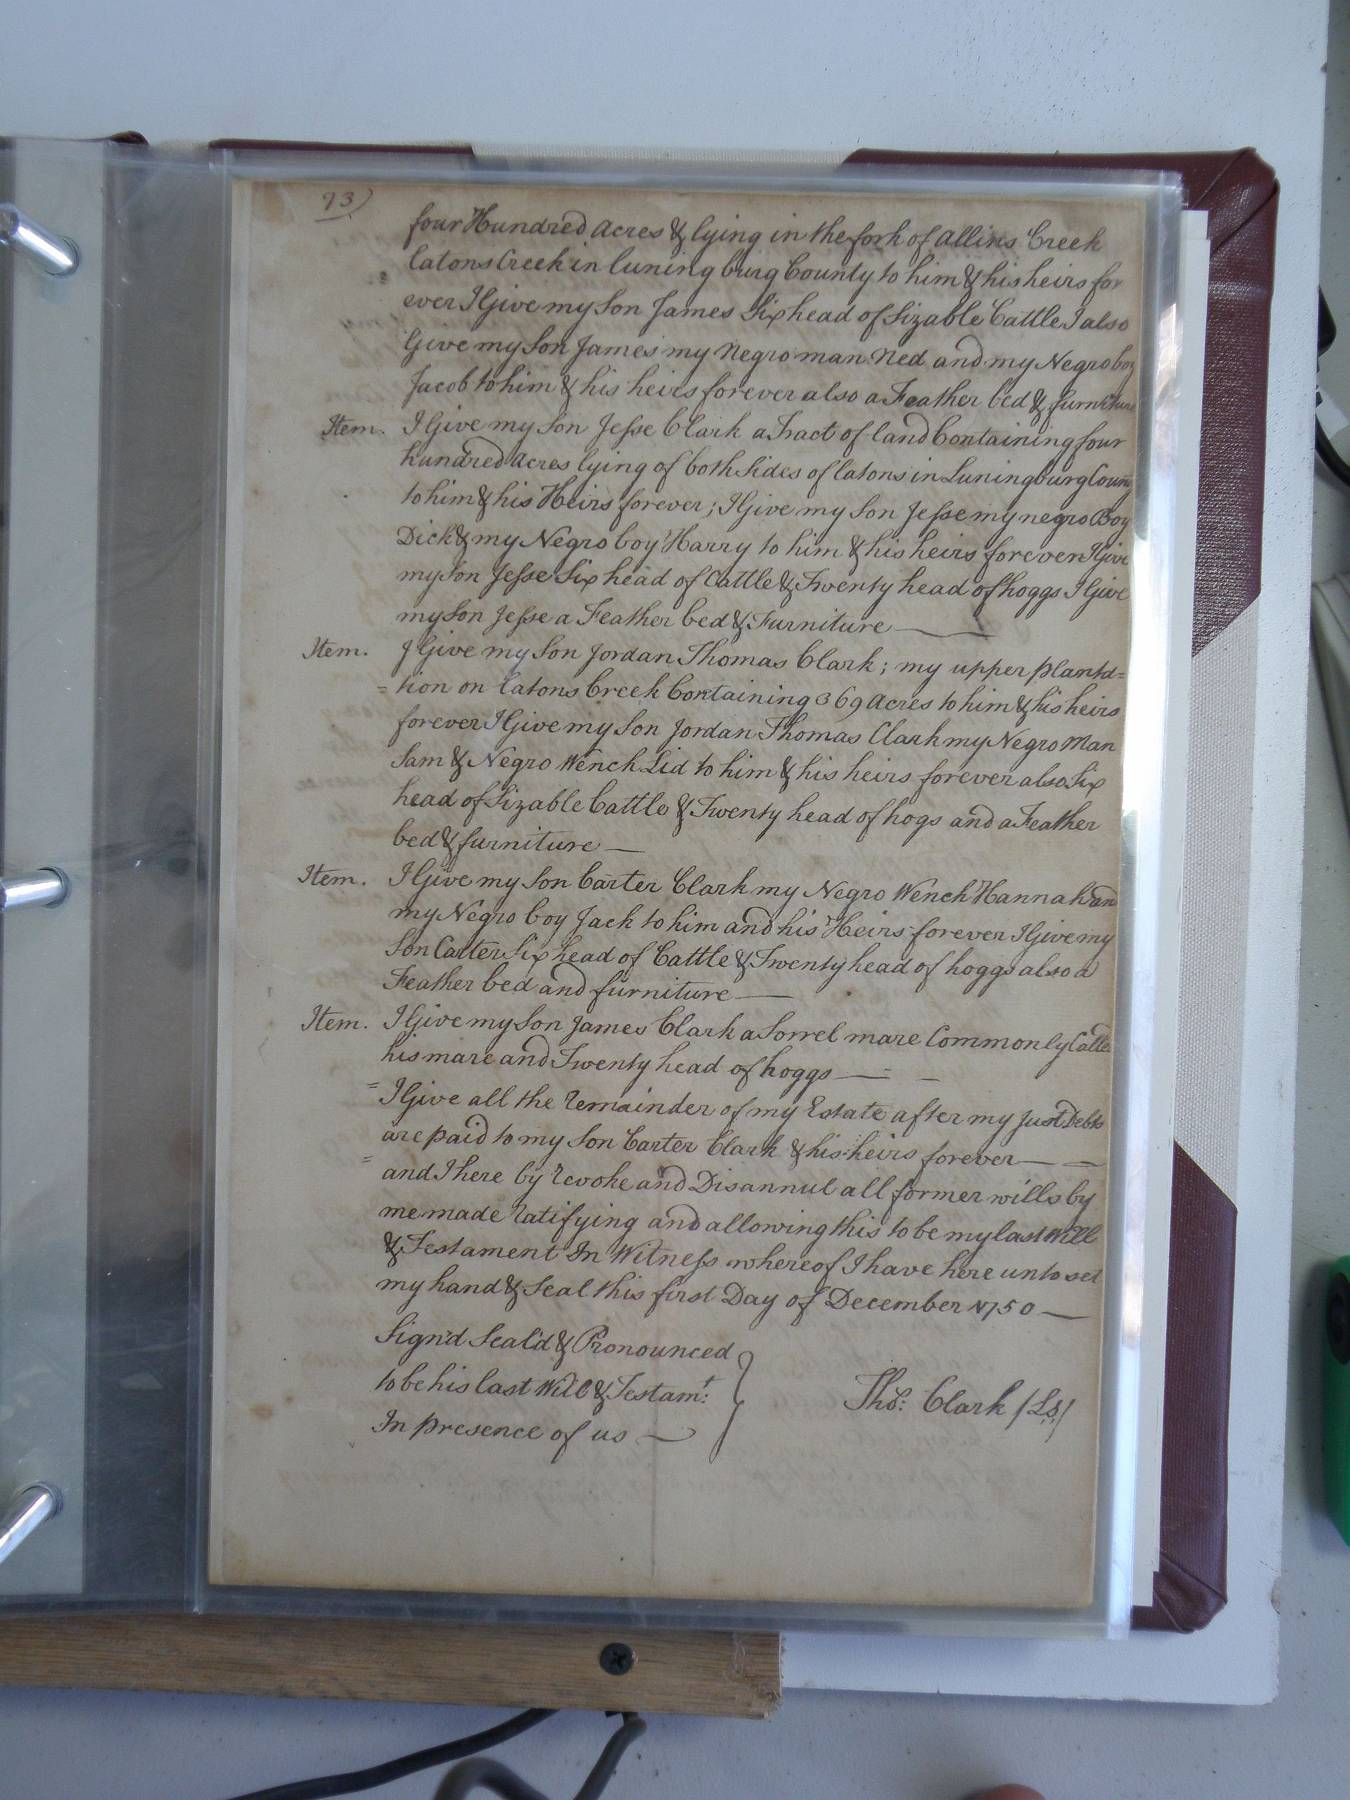 73)
four Hundred Acres & lying in the fork of Allins Creek
Catons Creek in Luningburg County to him & his heirs for
ever I Give my Son James Six head of Sizable Cattle I also
Give my Son James my Negro man Ned and my Negro boy
Jacob to him & his heirs forever also a Feather bed & furniture
Item. I Give my Son Jesse Clark a Tract of land Containing four
hundred Acres lying of both Sides of Catons in Luningburg County
to him & his Heirs forever; I Give my Son Jesse my negro Boy
Dick & my Negro boy Harry to him & his heirs forever I Give
my Son Jesse Six head of Cattle & Twenty head of hoggs I Give
my Son Jesse a Feather bed & Furniture
Item. I Give my Son Jordan Thomas Clark; my upper planta=
=tion on Catons Creek Containing 369 Acres to him & his heirs
forever I Give my Son Jordan Thomas Clark my Negro Man
Sam & Negro Wench Lid to him & his heirs forever also Six
head of Sizable Cattle & Twenty head of hogs and a Feather
bed & furniture —
Item. I Give my Son Carter Clark my Negro Wench Hannah and
my Negro boy Jack to him and his Heirs forever I Give my
Son Carter Six head of Cattle & Twenty head of hoggs also a
Feather bed and furniture —
Item. I Give my Son James Clark a Sorrel mare Commonly Called
his mare and Twenty head of hoggs — —
= I Give all the remainder of my Estate after my Just Debts
are paid to my Son Carter Clark & his heirs forever — —
= and I here by revoke and Disannul all former wills by
me made ratifying and allowing this to be my last Will
& Testament In Witness whereof I have here unto set
my hand & Seal this first Day of December 1750 —
Sign'd Seal'd & Pronounced
to be his last Will & Testamt:
In presence of us —
Thos: Clark (Ls)